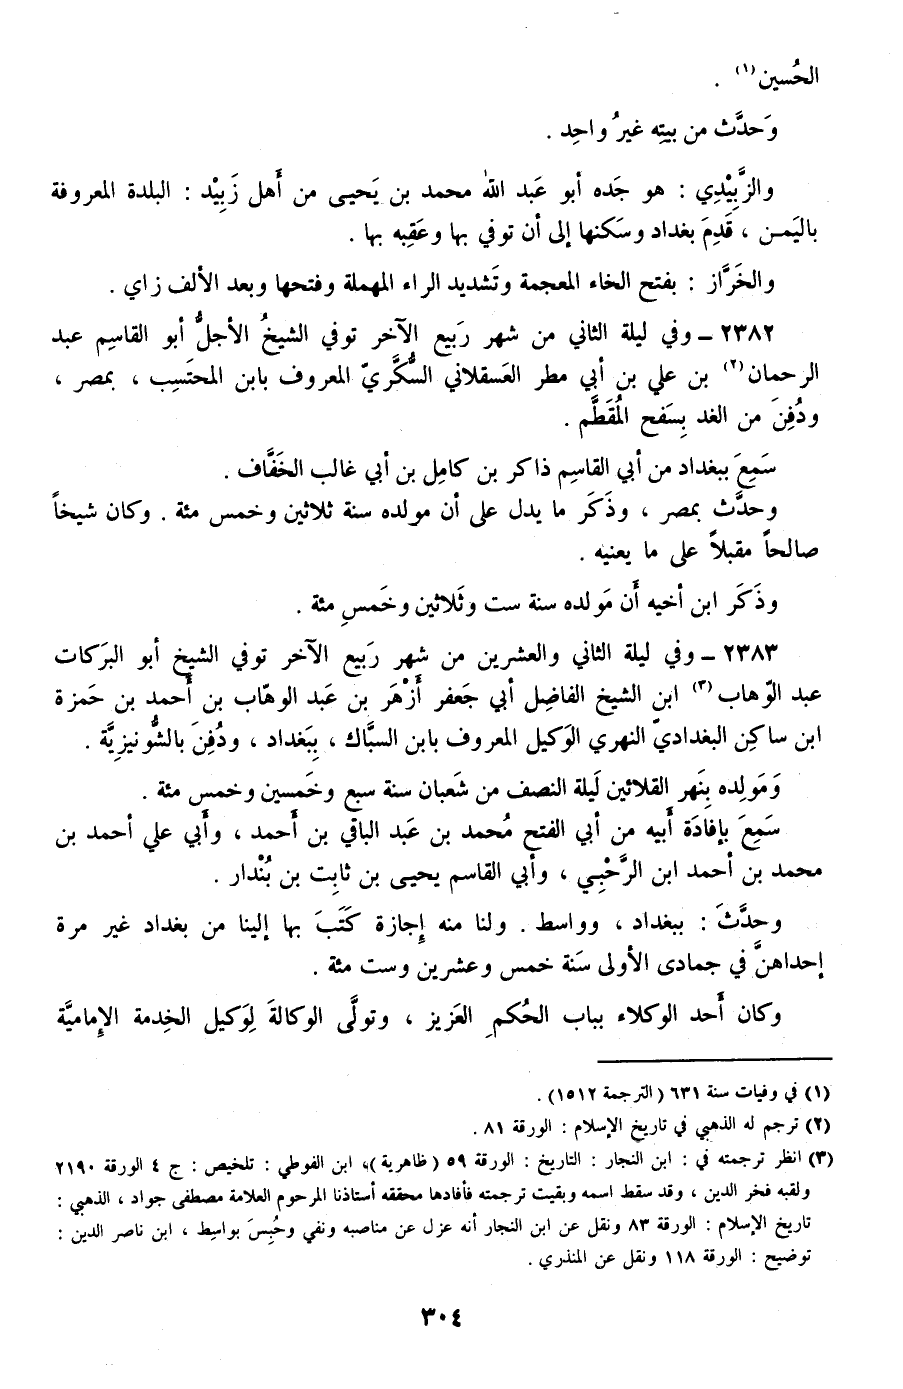 الحُسين(١) .
وَحدَّث من بيتِه غيرُ واحِد .
والزَّبِيْدِي : هو جَده أبو عَبد اللهْ محمد بن يَحيـى من أَهل زَبِيْد : البلدة المعروفة
باليَمـن ، قَدِمَ بغداد وسَكنها إلى أن توفي بها وعَقِبه بها .
والخَرَّاز : بفتح الخاء المعجمة وتَشديد الراء المهملة وفتحها وبعد الألف زاي .
٢٣٨٢ ـ وفي ليلة الثاني من شهر رَبيع الآخر توفي الشيخُ الأجلُّ أبو القاسِم عبد
الرحمان(٢) بن علي بن أبي مطر العَسقلاني السُّكَّريّ المعروف بابن المحتَسِب ، بمصر ،
ودُفِنَ من الغد بِسَفح المُقَطَّم .
سَمِعَ ببغداد من أبي القاسِم ذاكر بن كامِل بن أبي غالب الخَفَّاف .
وحدَّث بمصر ، وذَكَر ما يدل على أن مولده سنة ثلاثين وخمس مئة . وكان شيخاً
صالحاً مقبلاً على ما يعنيه .
وذَكَر ابن أخيه أَن مَولده سنة ست وثَلاثين وخَمسِ مئة .
٢٣٨٣ ـ وفي ليلة الثاني والعشرين من شهر رَبيع الآخر توفي الشيخ أبو البَركات
عبد الوّهاب(٣) ابن الشيخ الفاضِل أبي جَعفر أَزْهَر بن عَبد الوهّاب بن أَحمد بن حَمزة
ابن ساكِن البغداديّ النهري الوَكيل المعروف بابن السبَّاك ، بِبَغداد ، ودُفِنَ بالشُّونيزِيَّة .
وَمَولِده بِنَهر القلائين لَيلة النصف من شَعبان سنة سبع وخَمسين وخمس مئة .
سَمِعَ بإفادَة أَبيه من أبي الفتح مُحمد بن عَبد الباقي بن أَحمد ، وأَبي علي أحمد بن
محمد بن أحمد ابن الرَّحْبِـي ، وأَبي القاسم يحيـى بن ثابِت بن بُنْدار .
وحدَّثَ : ببغداد ، وواسط . ولنا منه إِجازة كَتَبَ بها إلينا من بغداد غير مرة
إحداهنَّ في جمادى الأولى سَنة خمس وعشرين وست مئة .
وكان أَحد الوكلاء بباب الحُكمِ العَزيز ، وتولَّى الوكالةَ لِوَكيل الخِدمة الإِماميَّة
(١) في وفيات سنة ٦٣١ (الترجمة ١٥١٢) .
(٢) ترجم له الذهبي في تاريخ الإسلام : الورقة ٨١ .
(٣) انظر ترجمته في : ابن النجار : التاريخ : الورقة ٥٩ (ظاهرية)، ابن الفوطي : تلخيص : ج ٤ الورقة ٢١٩٠
ولقبه فخر الدين ، وقد سقط اسمه وبقيت ترجمته فأفادها محققه أستاذنا المرحوم العلامة مصطفى جواد ، الذهبي :
تاريخ الإسلام : الورقة ٨٣ ونقل عن ابن النجار أنه عزل عن مناصبه ونفي وحُبِسَ بواسِط ، ابن ناصر الدين :
توضيح : الورقة ١١٨ ونقل عن المنذري .
٣٠٤